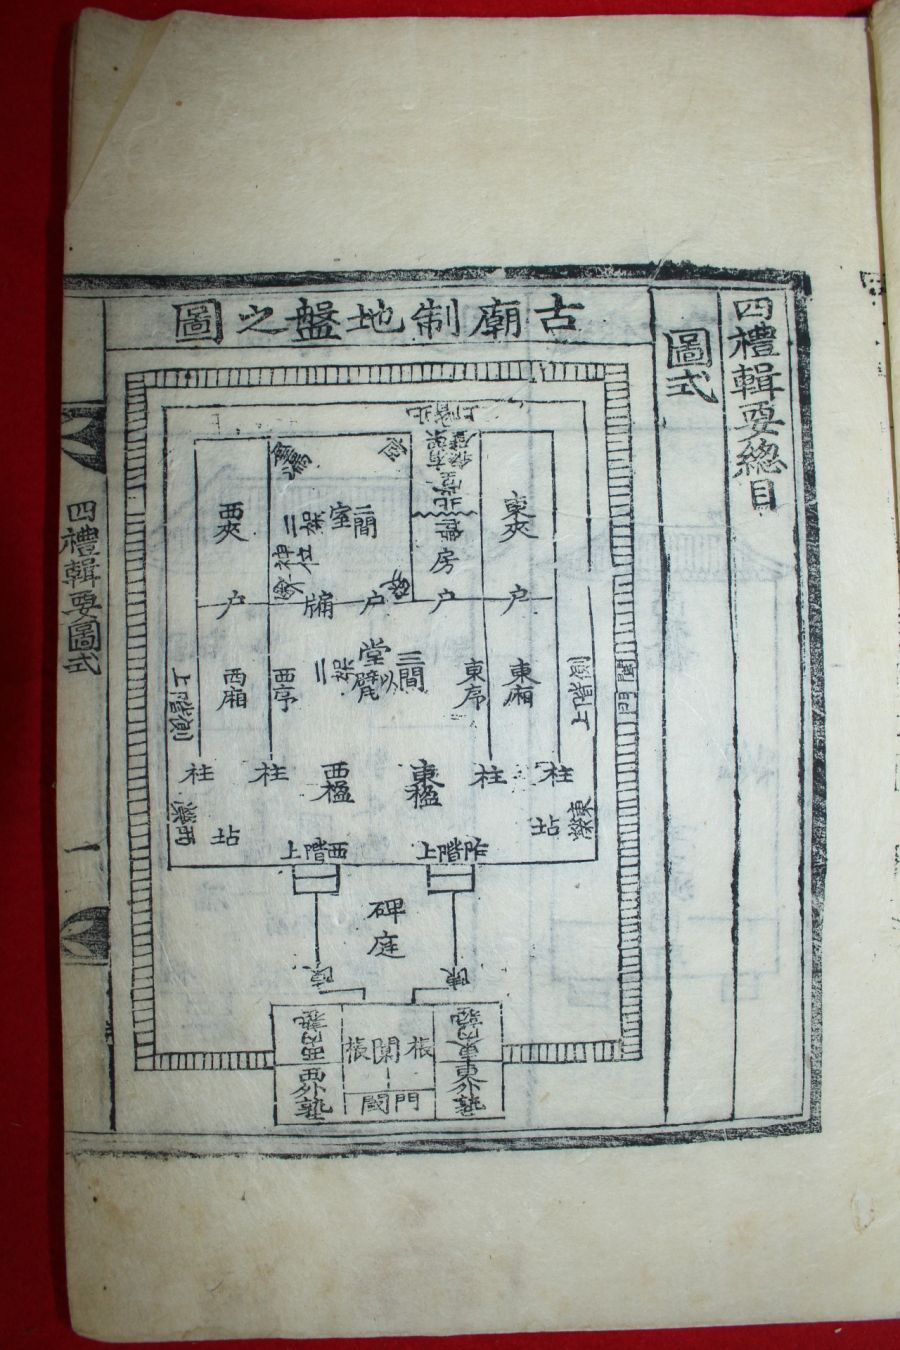 四禮輯要總目
圖式
古廟制地盤之圖
上階北
東夾
室二間
二架
西夾
北堂有
房
神位
户
户
牖
户
户
堂三間
二架
東廂
東序
西序
西廂
上階側
上階側
闈門
柱
柱
東楹
西楹
柱
柱
坫
坫
阼階上
西階上
碑
庭
陳
東內塾
棖
闑
棖
西內塾
東外塾
門
閾
西外塾
四禮輯要圖式
一